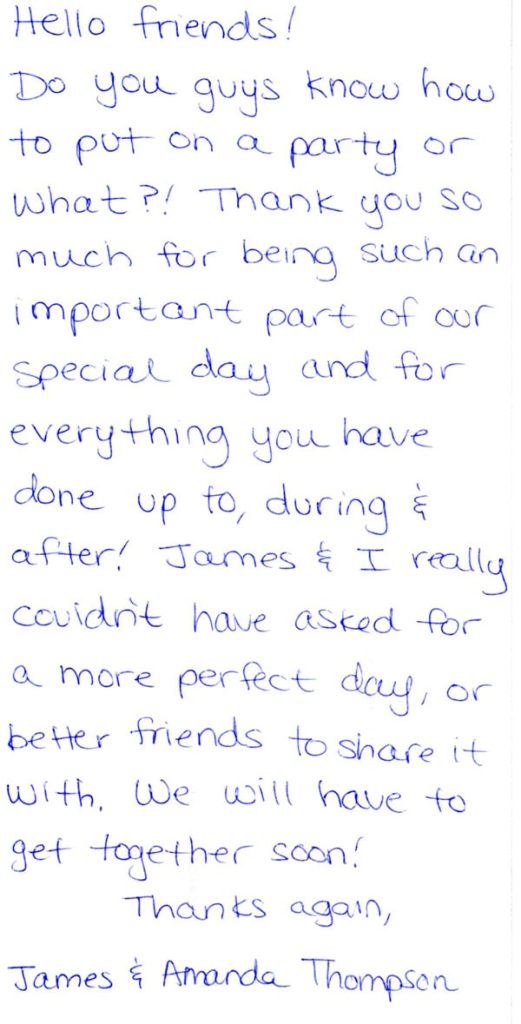 Hello friends!
Do you guys know how
to put on a party or
what?! Thank you so
much for being such an
important part of our
special day and for
everything you have
done up to, during &
after! James & I really
couldn't have asked for
a more perfect day, or
better friends to share it
with. We will have to
get together soon!
Thanks again,
James & Amanda Thompson